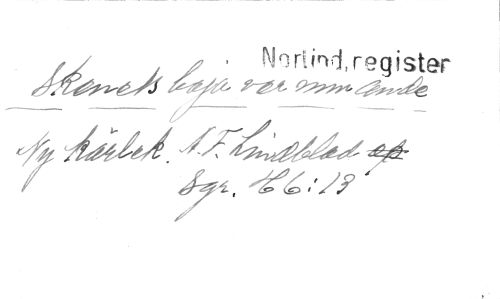 Nortind, register
Skenets boja var min ande
Ny kärlek. A. F. Lindblad op
Sgr. H 6:13